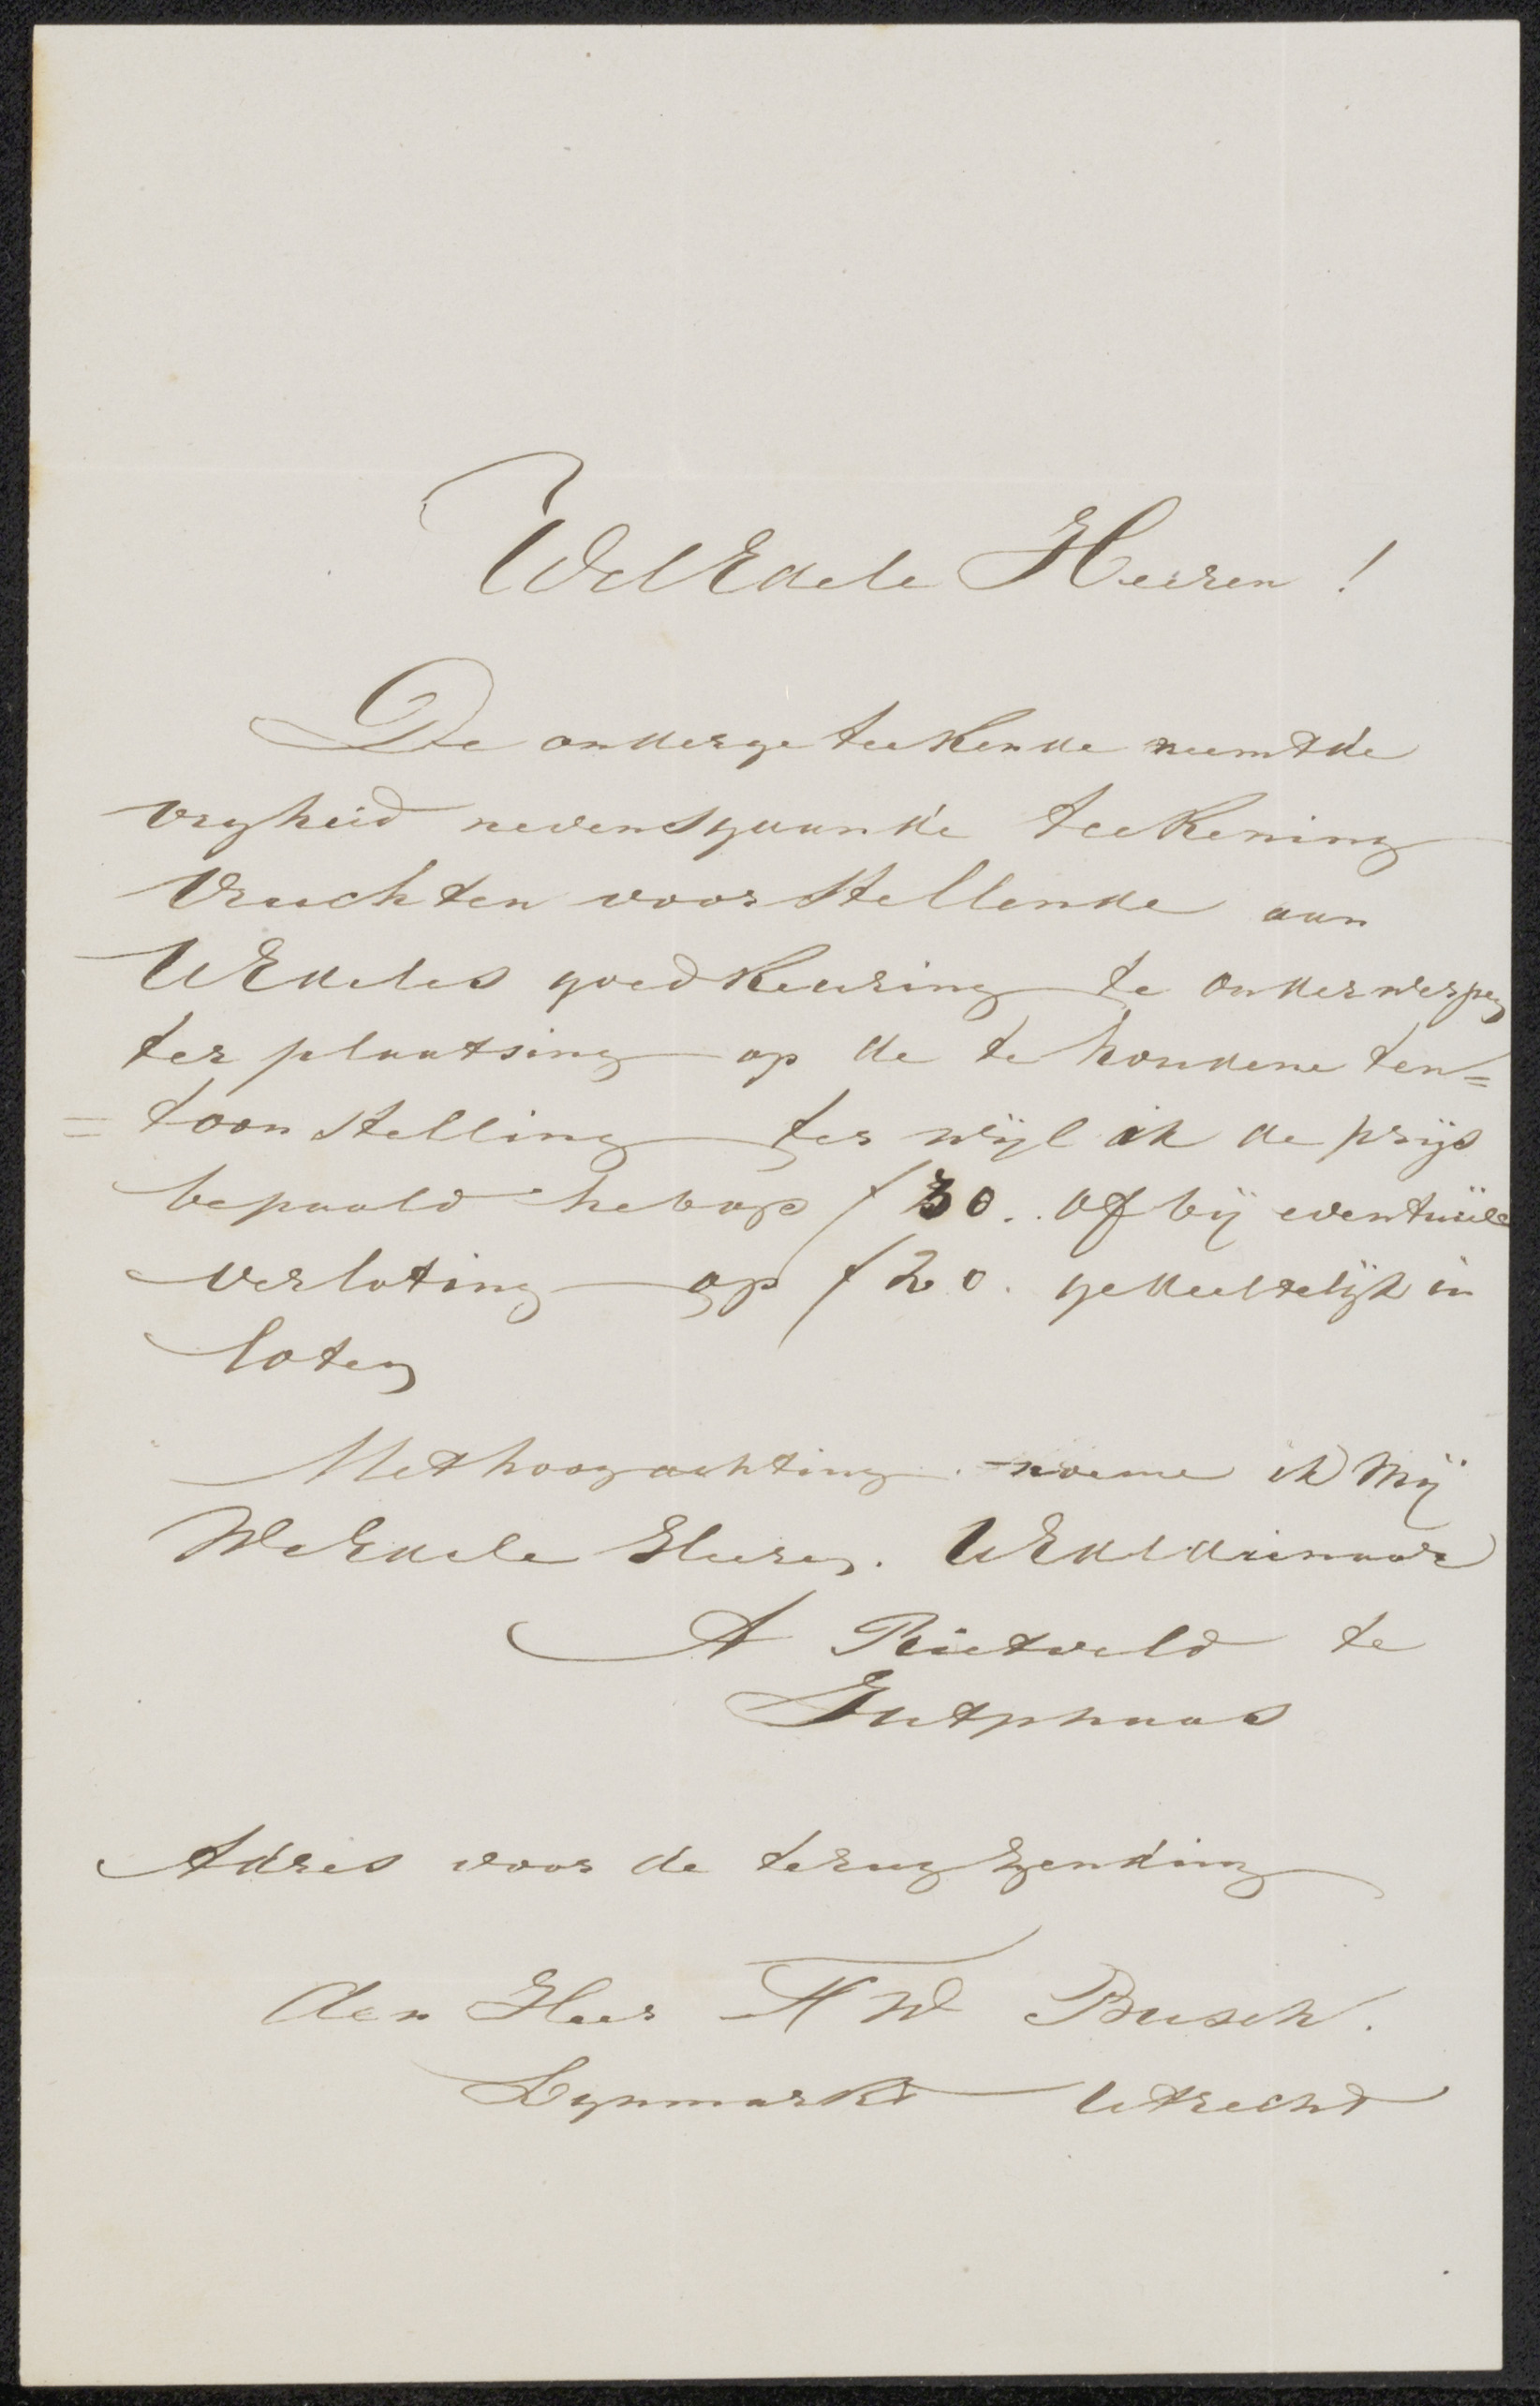 WelEdele Heeren!
De ondergeteekende neemt de
vryheid nevensgaande teekening
Vruchten voorstellende aan
UEdeles goedkeuring te onderwerpen
ter plaatsing op de te houdene ten=
=toonstelling terwijl ik de prijs
bepaald heb op f 30.. of bij eventuiele
verloting op f 20. gedeeltelijk in
loten
Met hoogachting noeme ik mij
WelEdele Heeren. UEd Dienaar
A Rietveld te
Jutphaas
Adres voor de terugzending
den Heer H W Busch.
Lynmarkt Utrecht